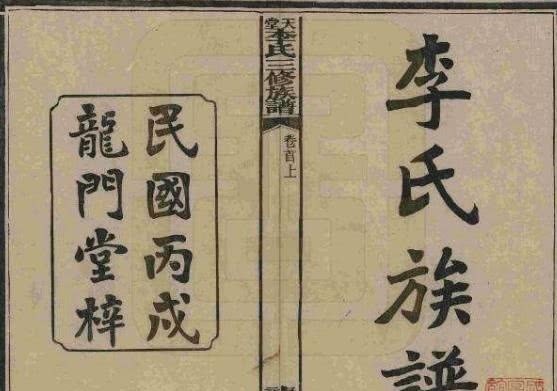 李氏族譜
天堂李氏三修族譜
卷首上
民國丙戌
龍門堂梓